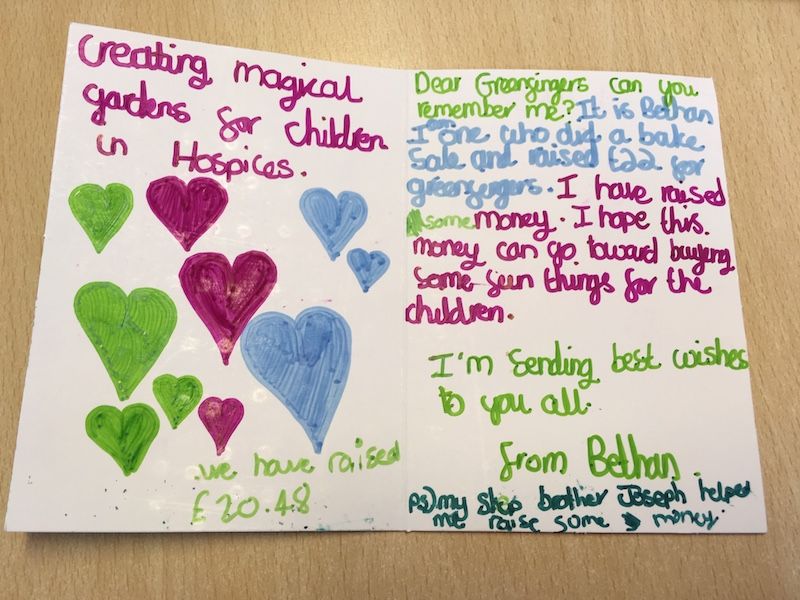 Creating magical
gardens for children
in Hospices.
we have raised
£20.48
Dear Greenfingers can you
remember me? It is Bethan
I am one who did a bake
Sale and raised £22 for
greenfingers. I have raised
some money. I hope this
money can go toward buying
some fun things for the
children.
I'm sending best wishes
to you all.
from Bethan
ps) my step brother Joseph helped
me raise some money